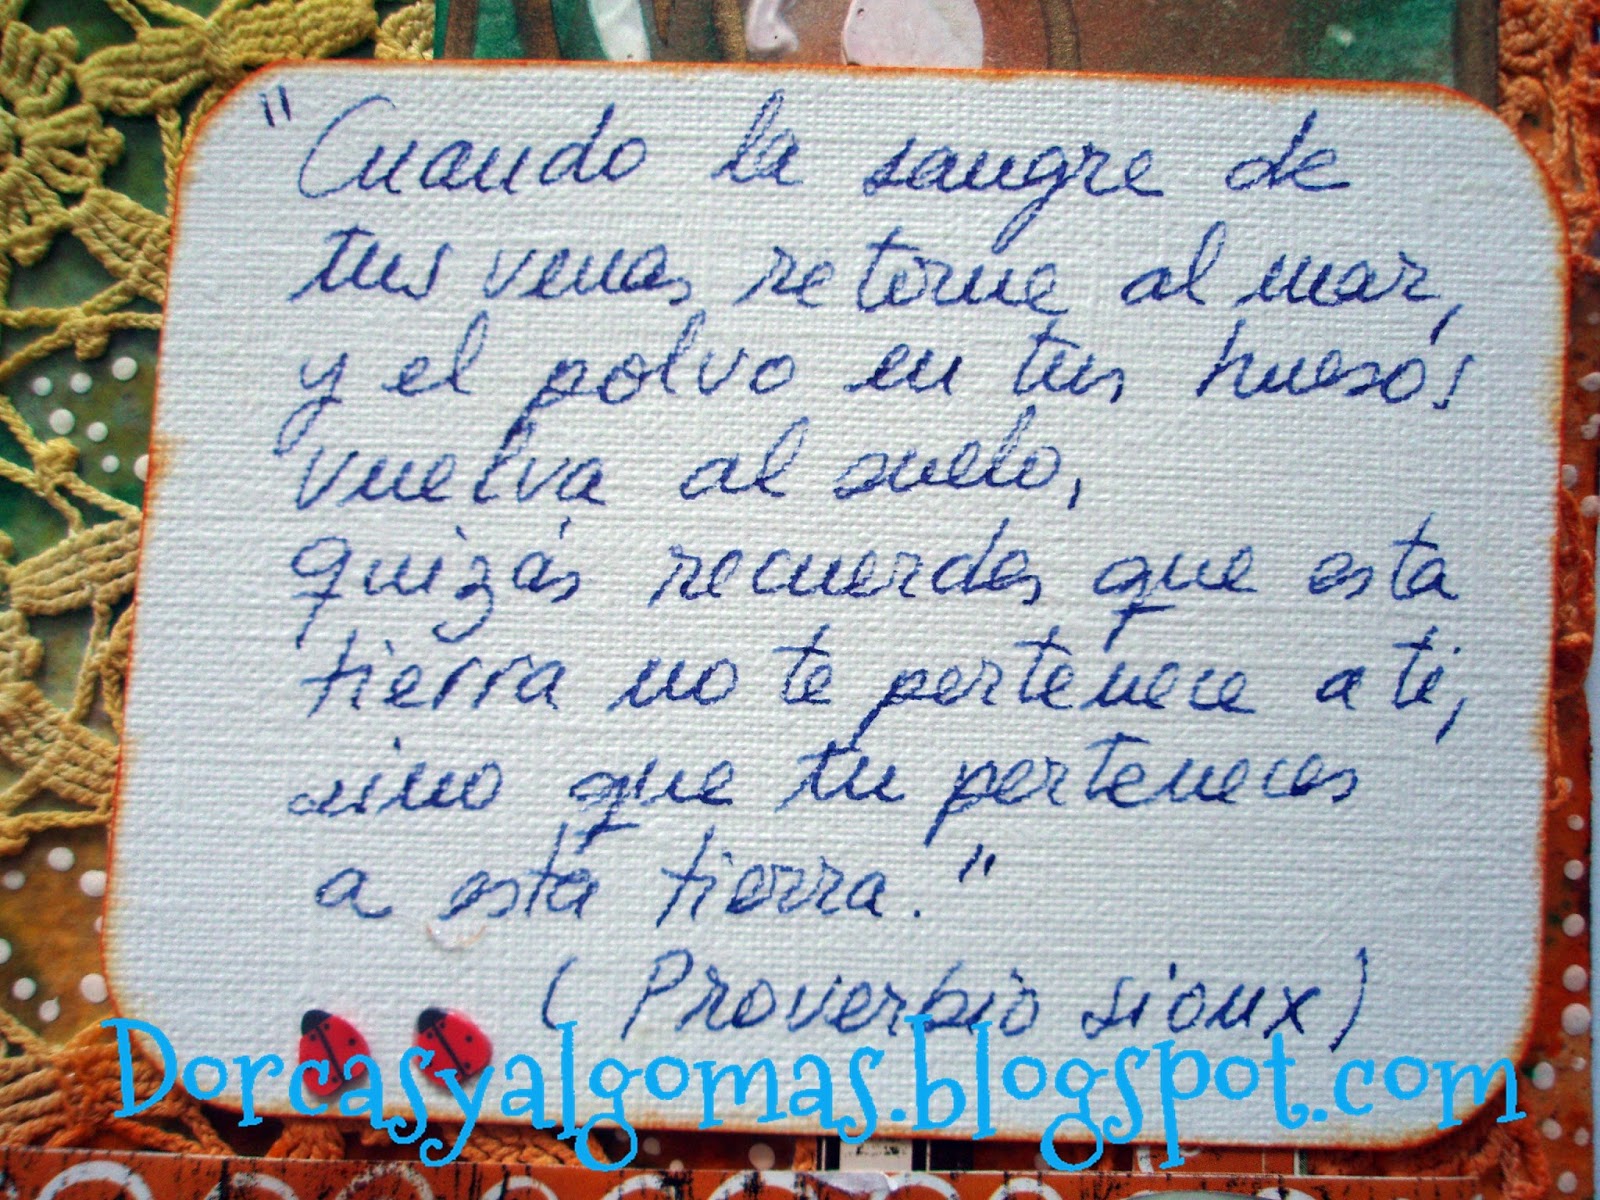 "Cuando la sangre de
tus venas retorne al mar,
y el polvo en tus huesos
vuelva al suelo,
quizás recuerdes que esta
tierra no te pertenece a ti,
sino que tu perteneces
a esta tierra."
(Proverbio sioux)
Dorcasyalgomas.blogspot.com